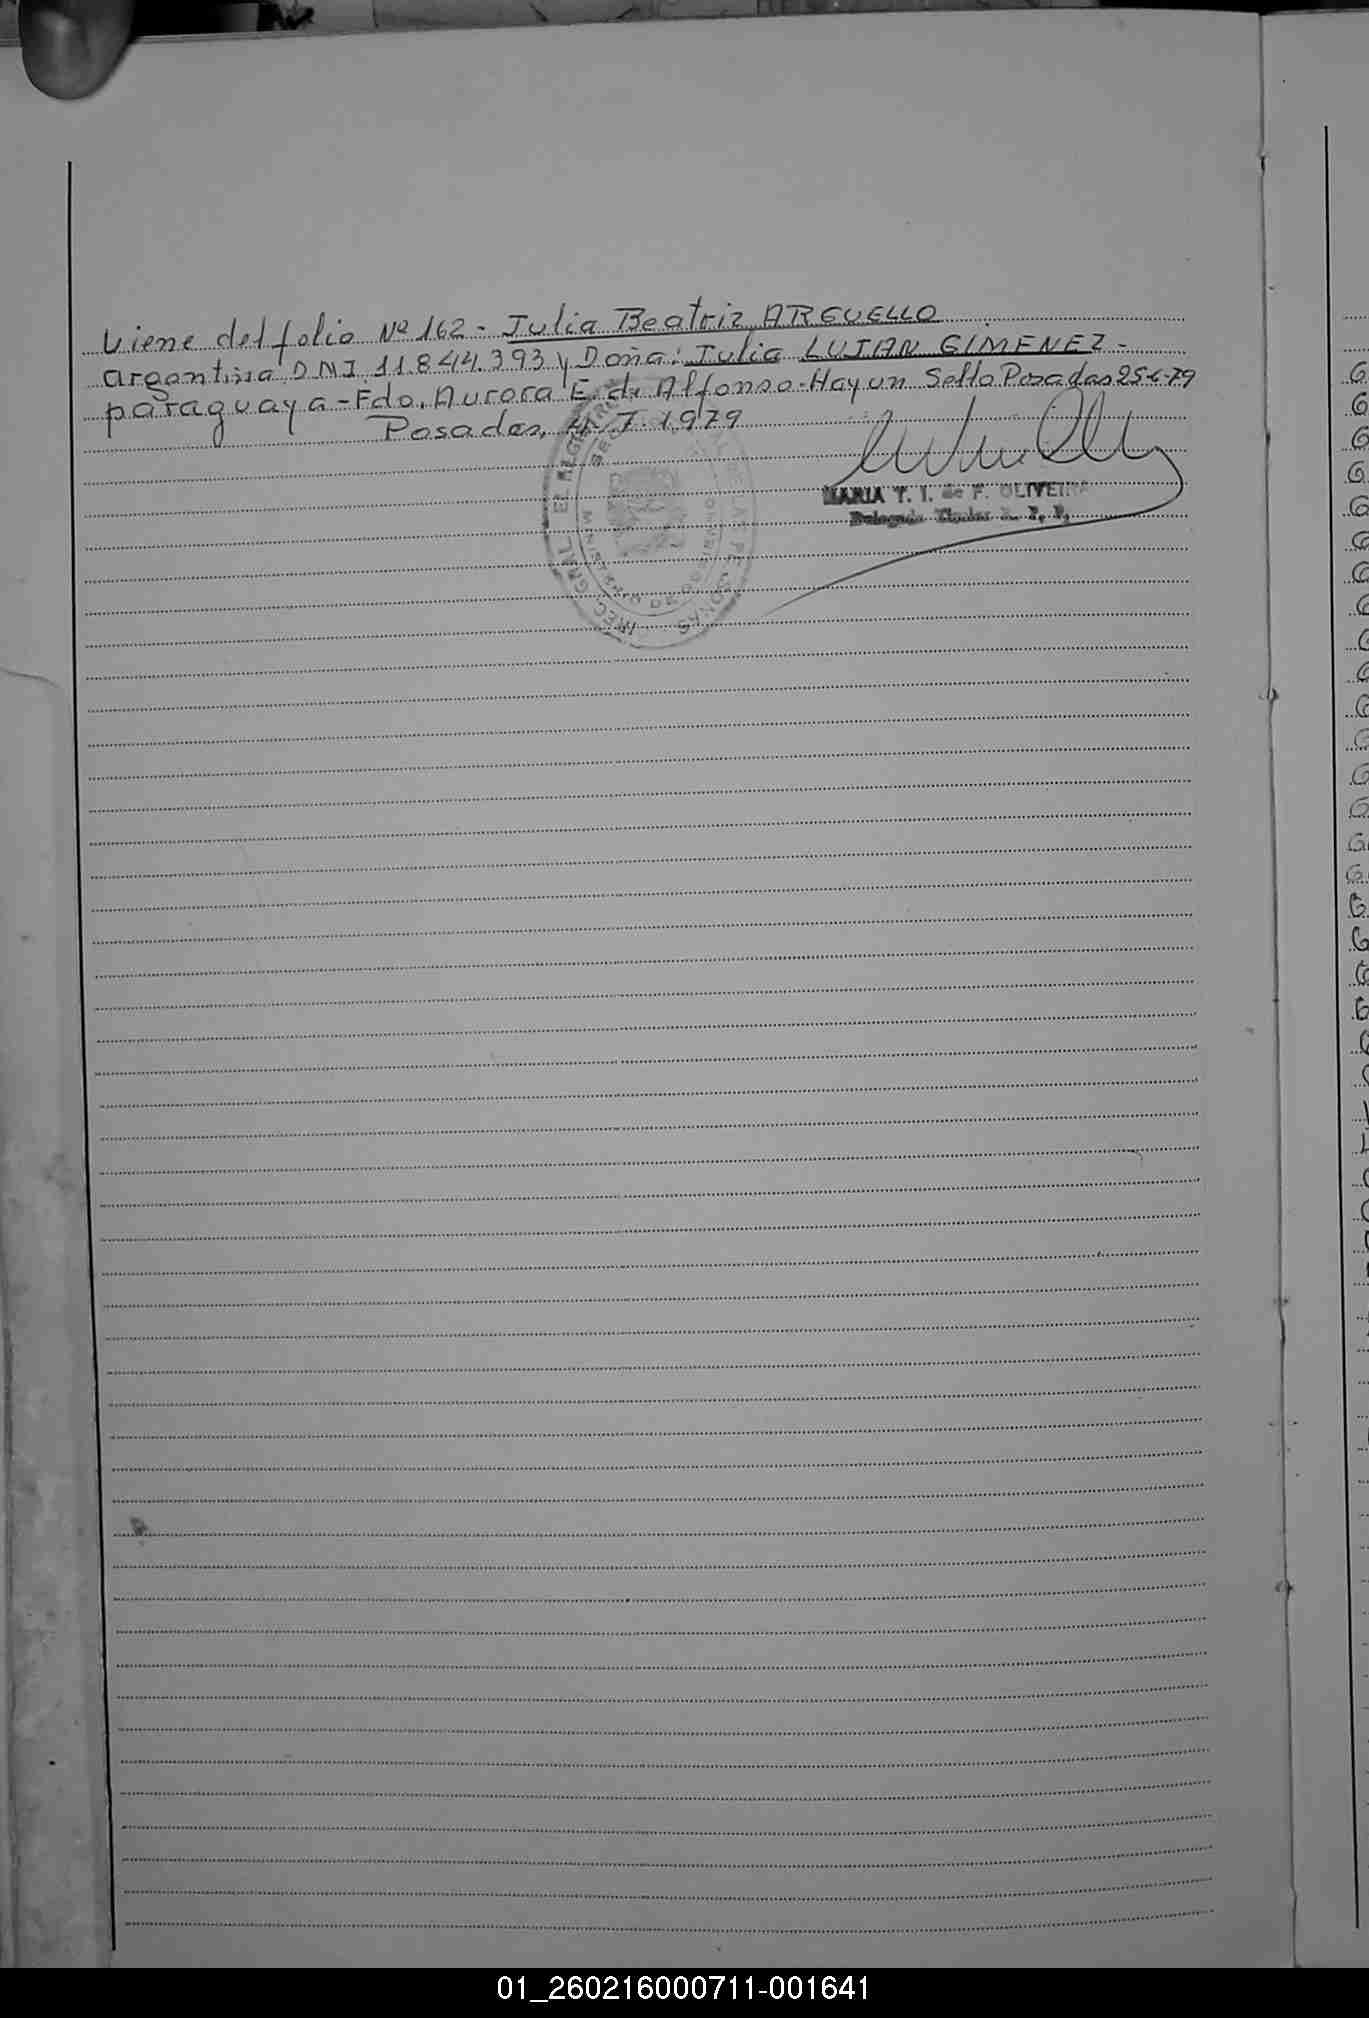 Viene del folio Nº 162 - Julia Beatriz ARGUELLO
argentina DNI 11.844.393 y Doña: Julia LUJAN GIMENEZ -
paraguaya - Fdo. Aurora E. de Alfonso - Hay un Sello Posadas 25-6-79
Posadas, 4.7.1979
MARIA T. I. de F. OLIVEIRA
Delegada Titular R. P. P.
01_260216000711-001641